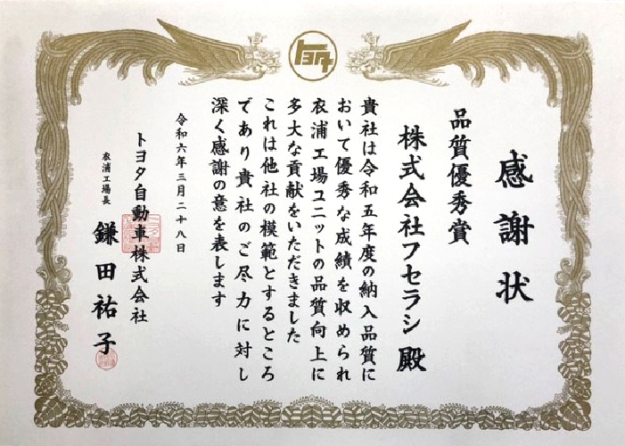 トヨタ
感謝状
品質優秀賞
株式会社フセラシ殿
貴社は令和五年度の納入品質に
おいて優秀な成績を収められ
衣浦工場ユニットの品質向上に
多大な貢献をいただきました
これは他社の模範とするところ
であり貴社のご尽力に対し
深く感謝の意を表します
令和六年三月二十八日
トヨタ自動車株式会社
衣浦工場長
鎌田祐子